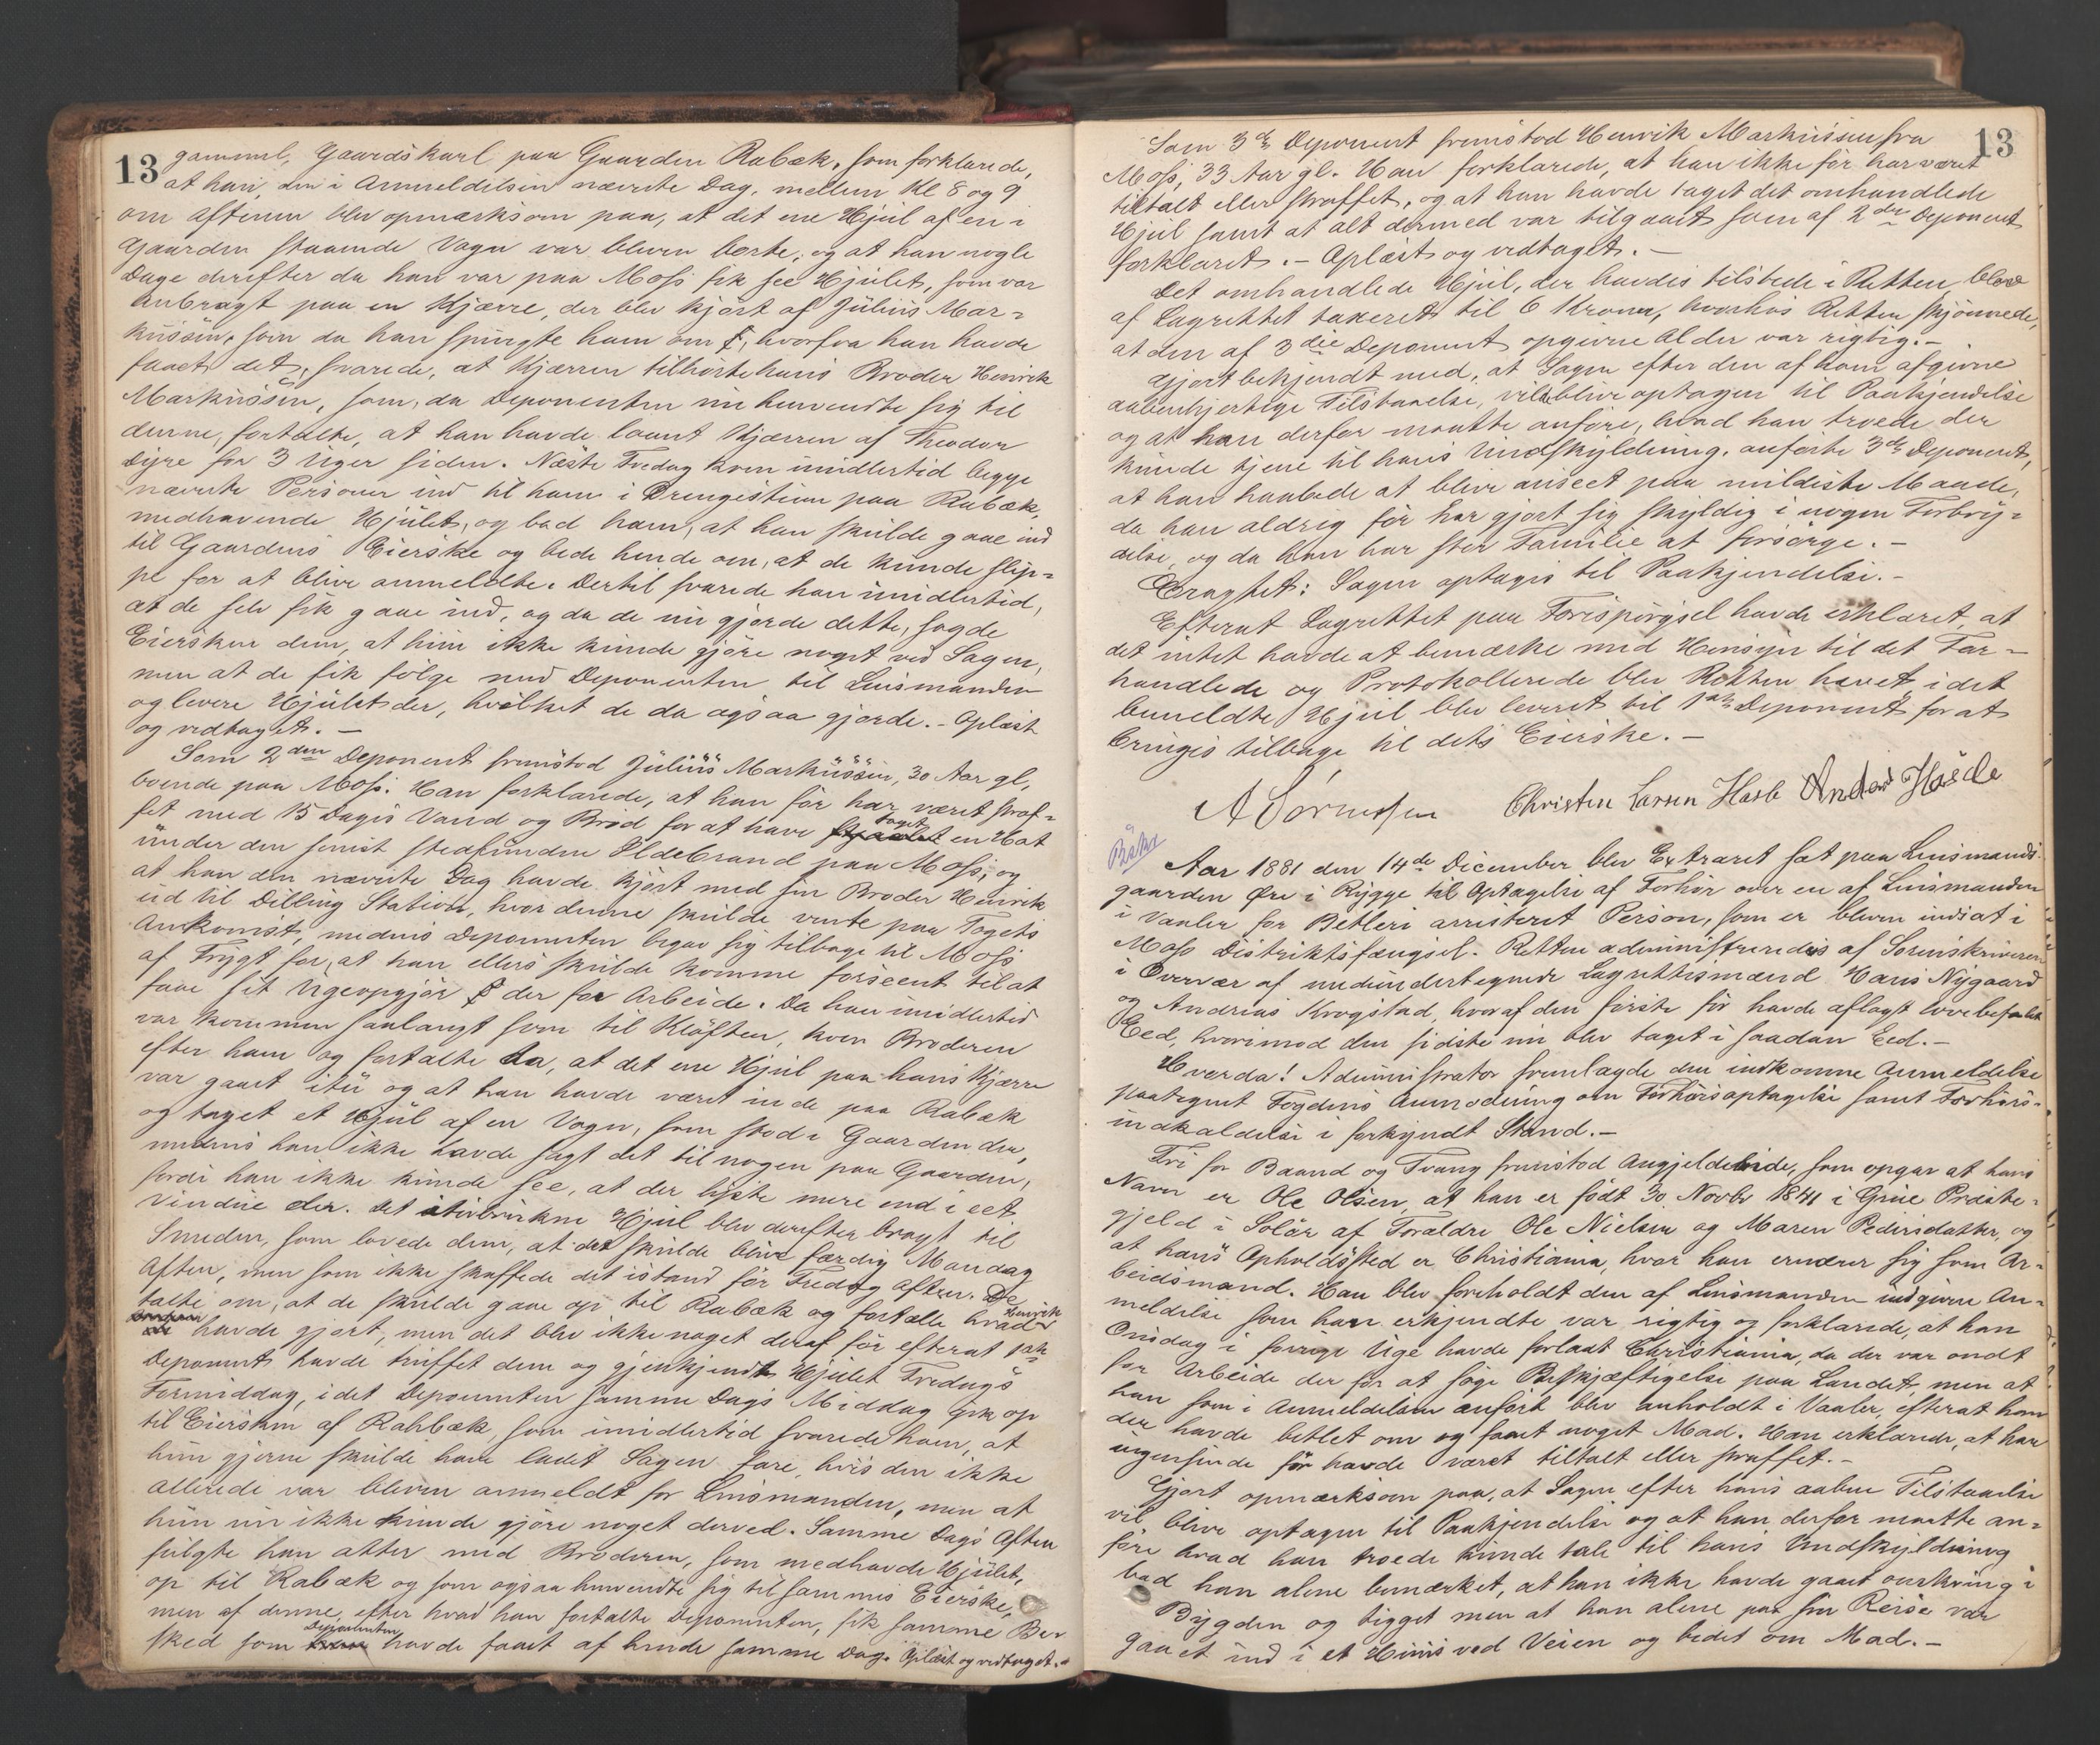 13
gammel, Gaardskarl paa Gaarden Rabæk, som forklarede,
at han, den i Anmeldelsen nævnte Dag, mellem Kl 8 og 9
om aftenen blev opmærksom paa, at det ene Hjul af en i
Gaarden staaende Vogn var bleven borte, og at han nogle
Dage derefter da han var paa Moss fik see Hjulet, som var
anbragt paa en Kjærre, der blev kjørt af Julius Mar=
kussen, som da han spurgte ham om, hvorfra han havde
faaet det, svarede, at Kjærren tilhørte hans Broder Henrik
Markussen, som, da Deponenten nu henvendte sig til
denne, fortalte, at han havde laant Kjærren af Theodor
Dyre for 3 Uger siden. Næste Fredag kom imidlertid begge
nævnte Personer ind til ham i Drengestuen paa Rabæk,
medhavende Hjulet, og bad ham, at han skulde gaae ind
til Gaardens Eierske og bede hende om, at de kunde slip=
pe for at blive anmeldte. Dertil svarede han imidlertid,
at de selv fik gaae ind, og da de nu gjorde dette, sagde
Eiersken dem, at hun ikke kunde gjøre noget ved Sagen,
men at de fik følge med Deponenten til Lensmanden
og levere Hjulet der, hvilket de da ogsaa gjorde. - Oplæst
og vedtaget. -
Som 2den Deponent fremstod Julius Markussen, 30 Aar gl,
boende paa Moss. Han forklarede, at han før har været straf=
fet med 15 Dages Vand og Brød for at have taget en Hat
under den senest stedfundne Ildebrand paa Moss; og
at han den nævnte Dag havde kjørt med sin Broder Henrik
ud til Dilling Station, hvor denne skulde vente paa Togets
Ankomst, medens Deponenten begav sig tilbage til Moss
af Frygt for, at han ellers skulde komme forseent til at
faae sit Ugeopgjør der for Arbeide. Da han imidlertid
var kommen saalangt som til Kløften, kom Broderen
efter ham og fortalte da, at det ene Hjul paa hans Kjærre
var gaaet itu og at han havde været inde paa Rabæk
og taget et Hjul af en Vogn, som stod i Gaarden der,
medens han ikke havde sagt det til nogen paa Gaarden,
fordi han ikke kunde see, at der lyste mere end i eet
Vindue der. Det itubrukne Hjul blev derefter bragt til
Smeden, som lovede dem, at det skulde blive færdig Mandag
Aften, men som ikke skaffede det istand før Fredag aften. De
talte om, at de skulde gaae op til Rabæk og fortælle hvad Henrik
havde gjort, men det blev ikke noget deraf før efterat 1ste
Deponent havde truffet dem og gjenkjendt Hjulet Fredags
Formiddag, idet Deponenten samme Dags Middag gik op
til Eiersken af Rabbæk, som imidlertid svarede ham, at
hun gjerne skulde have ladet Sagen fare, hvis den ikke
allerede var bleven anmeldt for Lensmanden, men at
hun nu ikke kunde gjøre noget derved. Samme Dags Aften
fulgte han atter med Broderen, som medhavde Hjulet,
op til Rabæk og som ogsaa henvendte sig til sammes Eierske,
men af denne, efter hvad han fortalte Deponenten, fik samme Be=
sked som Deponenten havde faaet af hende samme Dag. Oplæst og vedtaget. -
13
Som 3de Deponent fremstod Henrik Markussen fra
Moss, 33 Aar gl. Han forklarede, at han ikke før har været
tiltalt eller straffet, og at han havde taget det omhandlede
Hjul samt at alt dermed var tilgaaet som af 2den Deponent
forklaret. - Oplæst og vedtaget. -
Det omhandlede Hjul, der havdes tilstede i Retten, blev
af Lagrettet taxeret til 6 Kroner, hvorhos Retten skjønnede,
at den af 3die Deponent opgivne Alder var rigtig. -
Gjort bekjendt med, at Sagen efter den af ham afgivne
aabenhjertige Tilstaaelse, vilde blive optagen til Paakjendelse
og at han derfor maatte anføre, hvad han troede der
kunde tjene til hans Undskyldning, anførte 3de Deponent,
at han haabede at blive anseet paa mildeste Maade,
da han aldrig før har gjort sig skyldig i nogen Forbry=
delse, og da han har stor Familie at forsørge. -
Eragtet: Sagen optages til Paakjendelse. -
Efterat Lagrettet paa Forespørgsel havde erklæret, at
det intet havde at bemærke med Hensyn til det For=
handlede og Protokollerede blev Retten hævet idet
bemeldte Hjul blev leveret til 1ste Deponent for at
bringes tilbage til dets Eierske. -
Christen Larsen
Aar 1881 den 14de December blev Extraret sat paa Lensmands-
gaarden Øre i Rygge til Optagelse af Forhør over en af Lensmanden
i Vaaler for Betleri arresteret Person, som er bleven indsat i
Moss Distriktsfængsel. Retten administreredes af Sorenskriveren
i Overvær af medundertegnede Lagrettesmænd Hans Nygaard
og Andreas Krogstad, hvoraf den første før havde aflagt lovbefalet
Eed, hvorimod den sidste nu blev taget i saadan Eed. -
Hvorda! Administrator fremlagde den indkomne Anmeldelse
paategnet Fogdens Anmodning om Forhørsoptagelse samt Forhørs=
indkaldelse i forkyndt Stand. -
Fri for Baand og Tvang fremstod Angjeldende, som opgav at hans
Navn er Ole Olsen, at han er født 30 Novbr 1841 i Grue Præste=
gjeld i Solør af Forældre Ole Nielsen og Maren Pedersdatter, og
at hans Opholdssted er Christiania, hvor han ernærer sig som Ar=
beidsmand. Han blev foreholdt den af Lensmanden indgivne An=
meldelse som han erkjendte var rigtig og forklarede, at han
Onsdag i forrige Uge havde forladt Christiania, da der var ondt
for Arbeide der for at søge Beskjæftigelse paa Landet, men at
han som i Anmeldelsen anført blev anholdt i Vaaler, efterat han
der havde betlet om og faaet noget Mad. Han erklærede, at han
ingensinde før havde været tiltalt eller straffet. -
Gjort opmærksom paa, at Sagen efter hans aabne Tilstaaelse
vil blive optagen til Paakjendelse og at han derfor maatte an=
føre hvad han troede kunde tale til hans Undskyldning
bad han alene bemærket, at han ikke havde gaaet omkring i
Bygden og tigget men at han alene paa sin Reise var
gaaet ind i et Huus ved Veien og bedet om Mad. -